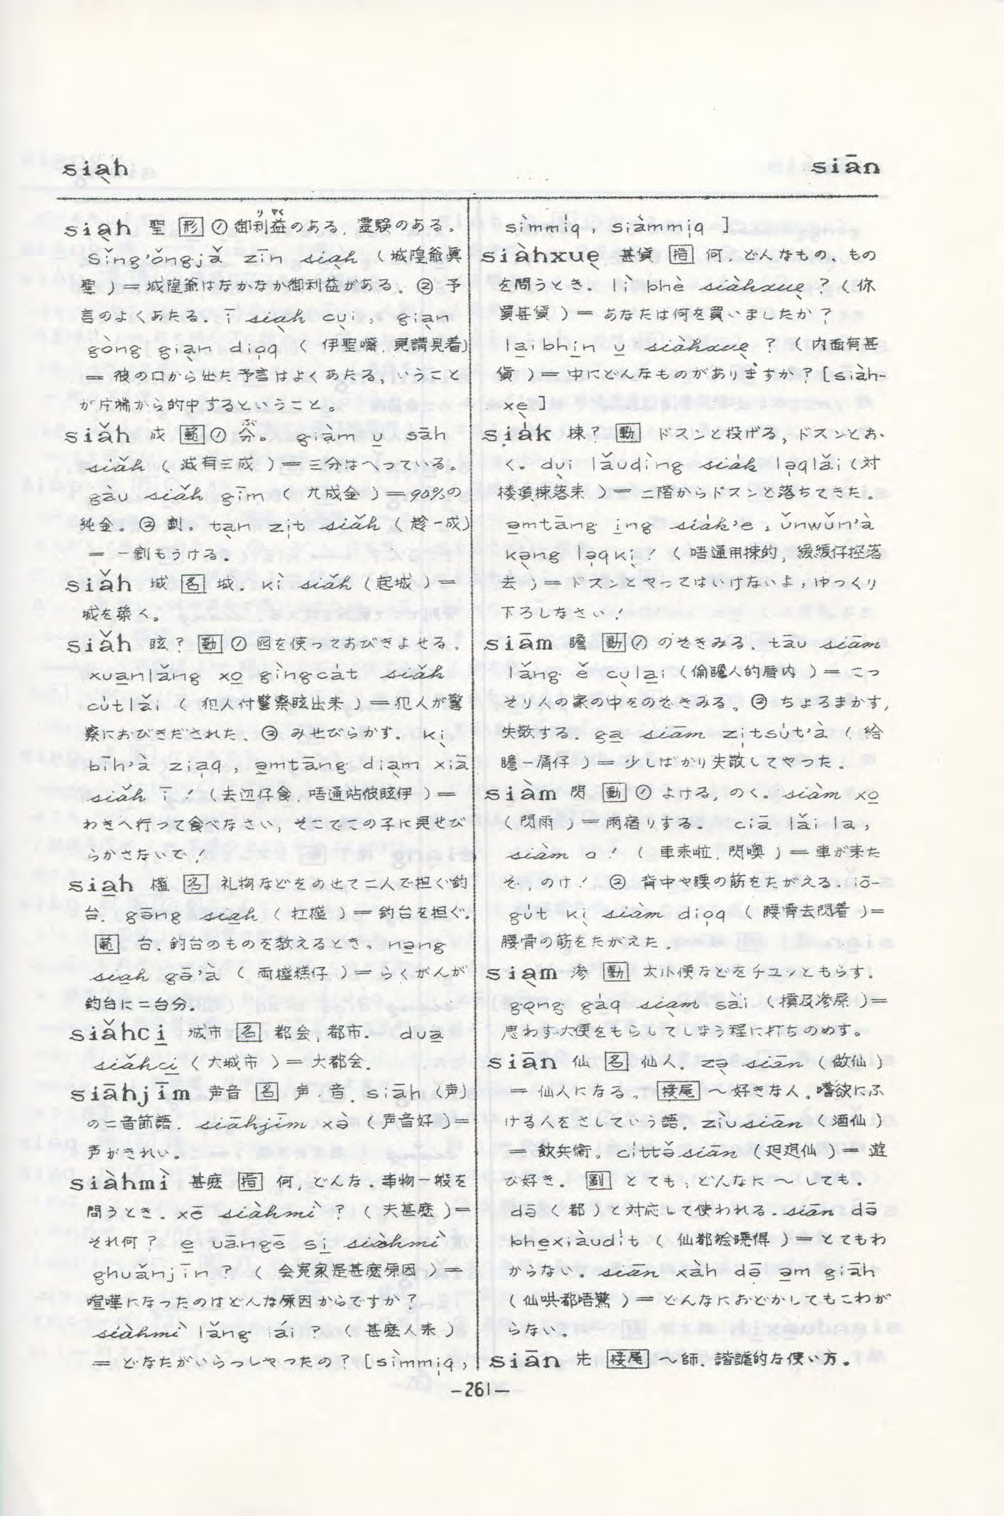 siạh
siān
siạh 聖 [形] ① 御利益のある, 霊験のある。
りやく
Sing'ŏngjǎ zīn siạh ( 城隍爺真
聖 ) = 城隍爺はなかなか御利益がある. ② 予
言のよくあたる. ī siạh cụi, giạn
gòng giạn diọq ( 伊聖嘴, 見講見着)
= 彼の口から出た予言はよくあたる, いうこと
が片端から的中するということ。
siǎh 成 [範] ① 分。 giàm u̱ sāh
ぶ
siǎh ( 減有三成 ) = 三分はへっている。
gāu siǎh gīm ( 九成金 ) = 90%の
純金. ② 割. tạn zịt siǎh ( 趁一成)
= 一割もうける.
siǎh 城 [名] 城. kì siǎh (起城 ) =
城を築く。
siǎh 眩? [動] ① 囮を使っておびきよせる.
xua̱nlǎng xo̱ gìngcát siǎh
cu̍tlǎi ( 犯人付警察眩出来 ) = 犯人が警
察におびきだされた. ② みせびらかす. kị
bīh'à zia̍q, a̱mtāng dia̱m xiā
siǎh ī! ( 去辺仔食, 唔通站彼眩伊 ) =
わきへ行って食べなさい, そこでこの子に見せび
らかさないで!
sia̱h 檻 [名] 礼物などをのせて二人で担ぐ釣
台. gōng sia̱h ( 扛檻 ) = 釣台を担ぐ.
[範] 台. 釣台のものを数えるとき. nəng
sia̱h gō'à ( 両檻糕仔 ) = らくがんが
釣台に二台分.
siǎhci̱ 城市 [名] 都会, 都市. dua̱
siǎhci̱ ( 大城市 ) = 大都会.
siāhjīm 声音 [名] 声. 音. siāh (声)
の二音節語. siāhjīm xə̀ ( 声音好 ) =
声がきれい.
siàhmì 甚麽 [指] 何, どんな. 事物一般を
問うとき. xē siàhmì ? ( 夫甚麽 ) =
それ何? e̱ uāngē si̱ siàhmì
ghuǎnjīn ? ( 会冤家是甚麽原因 ) =
喧嘩になったのはどんな原因からですか?
siàhmì lǎng lǎi ? ( 甚麽人来 )
= どなたがいらっしゃったの? [sìmmịq,
sìmmịq, siàmmịq ]
siàhxuẹ 甚貨 [指] 何, どんなもの. もの
を問うとき. lì bhè siàhxuẹ ? ( 你
買甚貨 ) = あなたは何を買いましたか?
la̱ibhi̱n u̱ siàhxuẹ ? ( 内面有甚
貨 ) = 中にどんなものがありますか? [siàh-
xẹ ]
siȧk 捒? [動] ドスンと投げる, ドスンとお
く. dụi lǎudìng siȧk lə̣qlǎi (対
楼頂捒落来 ) = 二階からドスンと落ちてきた.
ə̱mtāng i̱ng siȧk'e, ǔnwǔn'à
kəng lə̣qkị! ( 唔通用捒的, 緩緩仔控落
去 ) = ドスンとやってはいけないよ, ゆっくり
下ろしなさい!
siām 瞻 [動] ① のぞきみる. tāu siām
lǎng ě cụla̱i (偷瞻人的厝内 ) = こっ
そり人の家の中をのぞきみる. ② ちょろまかす,
失敬する. ga̱ siām zịtsu̍t'à ( 給
瞻一屑仔 ) = 少しばかり失敬してやった.
siàm 閃 [動] ① よける, のく. siàm xo̱
( 閃雨 ) = 雨宿りする. ciā lǎi la,
siàm o! ( 車来啦, 閃噢 ) = 車が来た
ぞ, のけ! ② 背中や腰の筋をたがえる. iō-
gu̍t kị siàm diọq ( 腰骨去閃着 ) =
腰骨の筋をたがえた.
siạm 滲 [動] 大小便などをチョッともらす.
gọng gàq siạm sài ( 摃及滲屎 ) =
思わず大便をもらしてしまう程に打ちのめす。
siān 仙 [名] 仙人. zə̣ siān ( 做仙 )
= 仙人になる. [接尾] ～好きな人, 嗜欲にふ
ける人をさしていう語. zìu siān ( 酒仙 )
= 飲兵衛. cịttə̌ siān ( 𨑨迌仙 ) = 遊
び好き. [副] とても, どんなに～しても.
dō ( 都 ) と対応して使われる. siān dō
bhe̱xiàudi̍t ( 仙都𣍐曉得 ) = とてもわ
からない. siān xàh dō ə̱m giāh
( 仙哄都唔驚 ) = どんなにおどかしてもこわが
らない.
siān 先 [接尾] ～師. 諧謔的な使い方。
—261—